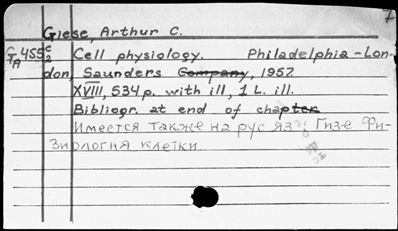 7
Giese, Arthur C.
Cell physiology. Philadelphia-Lon-
don, Saunders Company, 1957.
XVIII, 534 p. with ill, 1 L. ill.
Bibliogr. at end of chapter
Имеется также на рус яз: Гизе Фи-
зиология клетки.